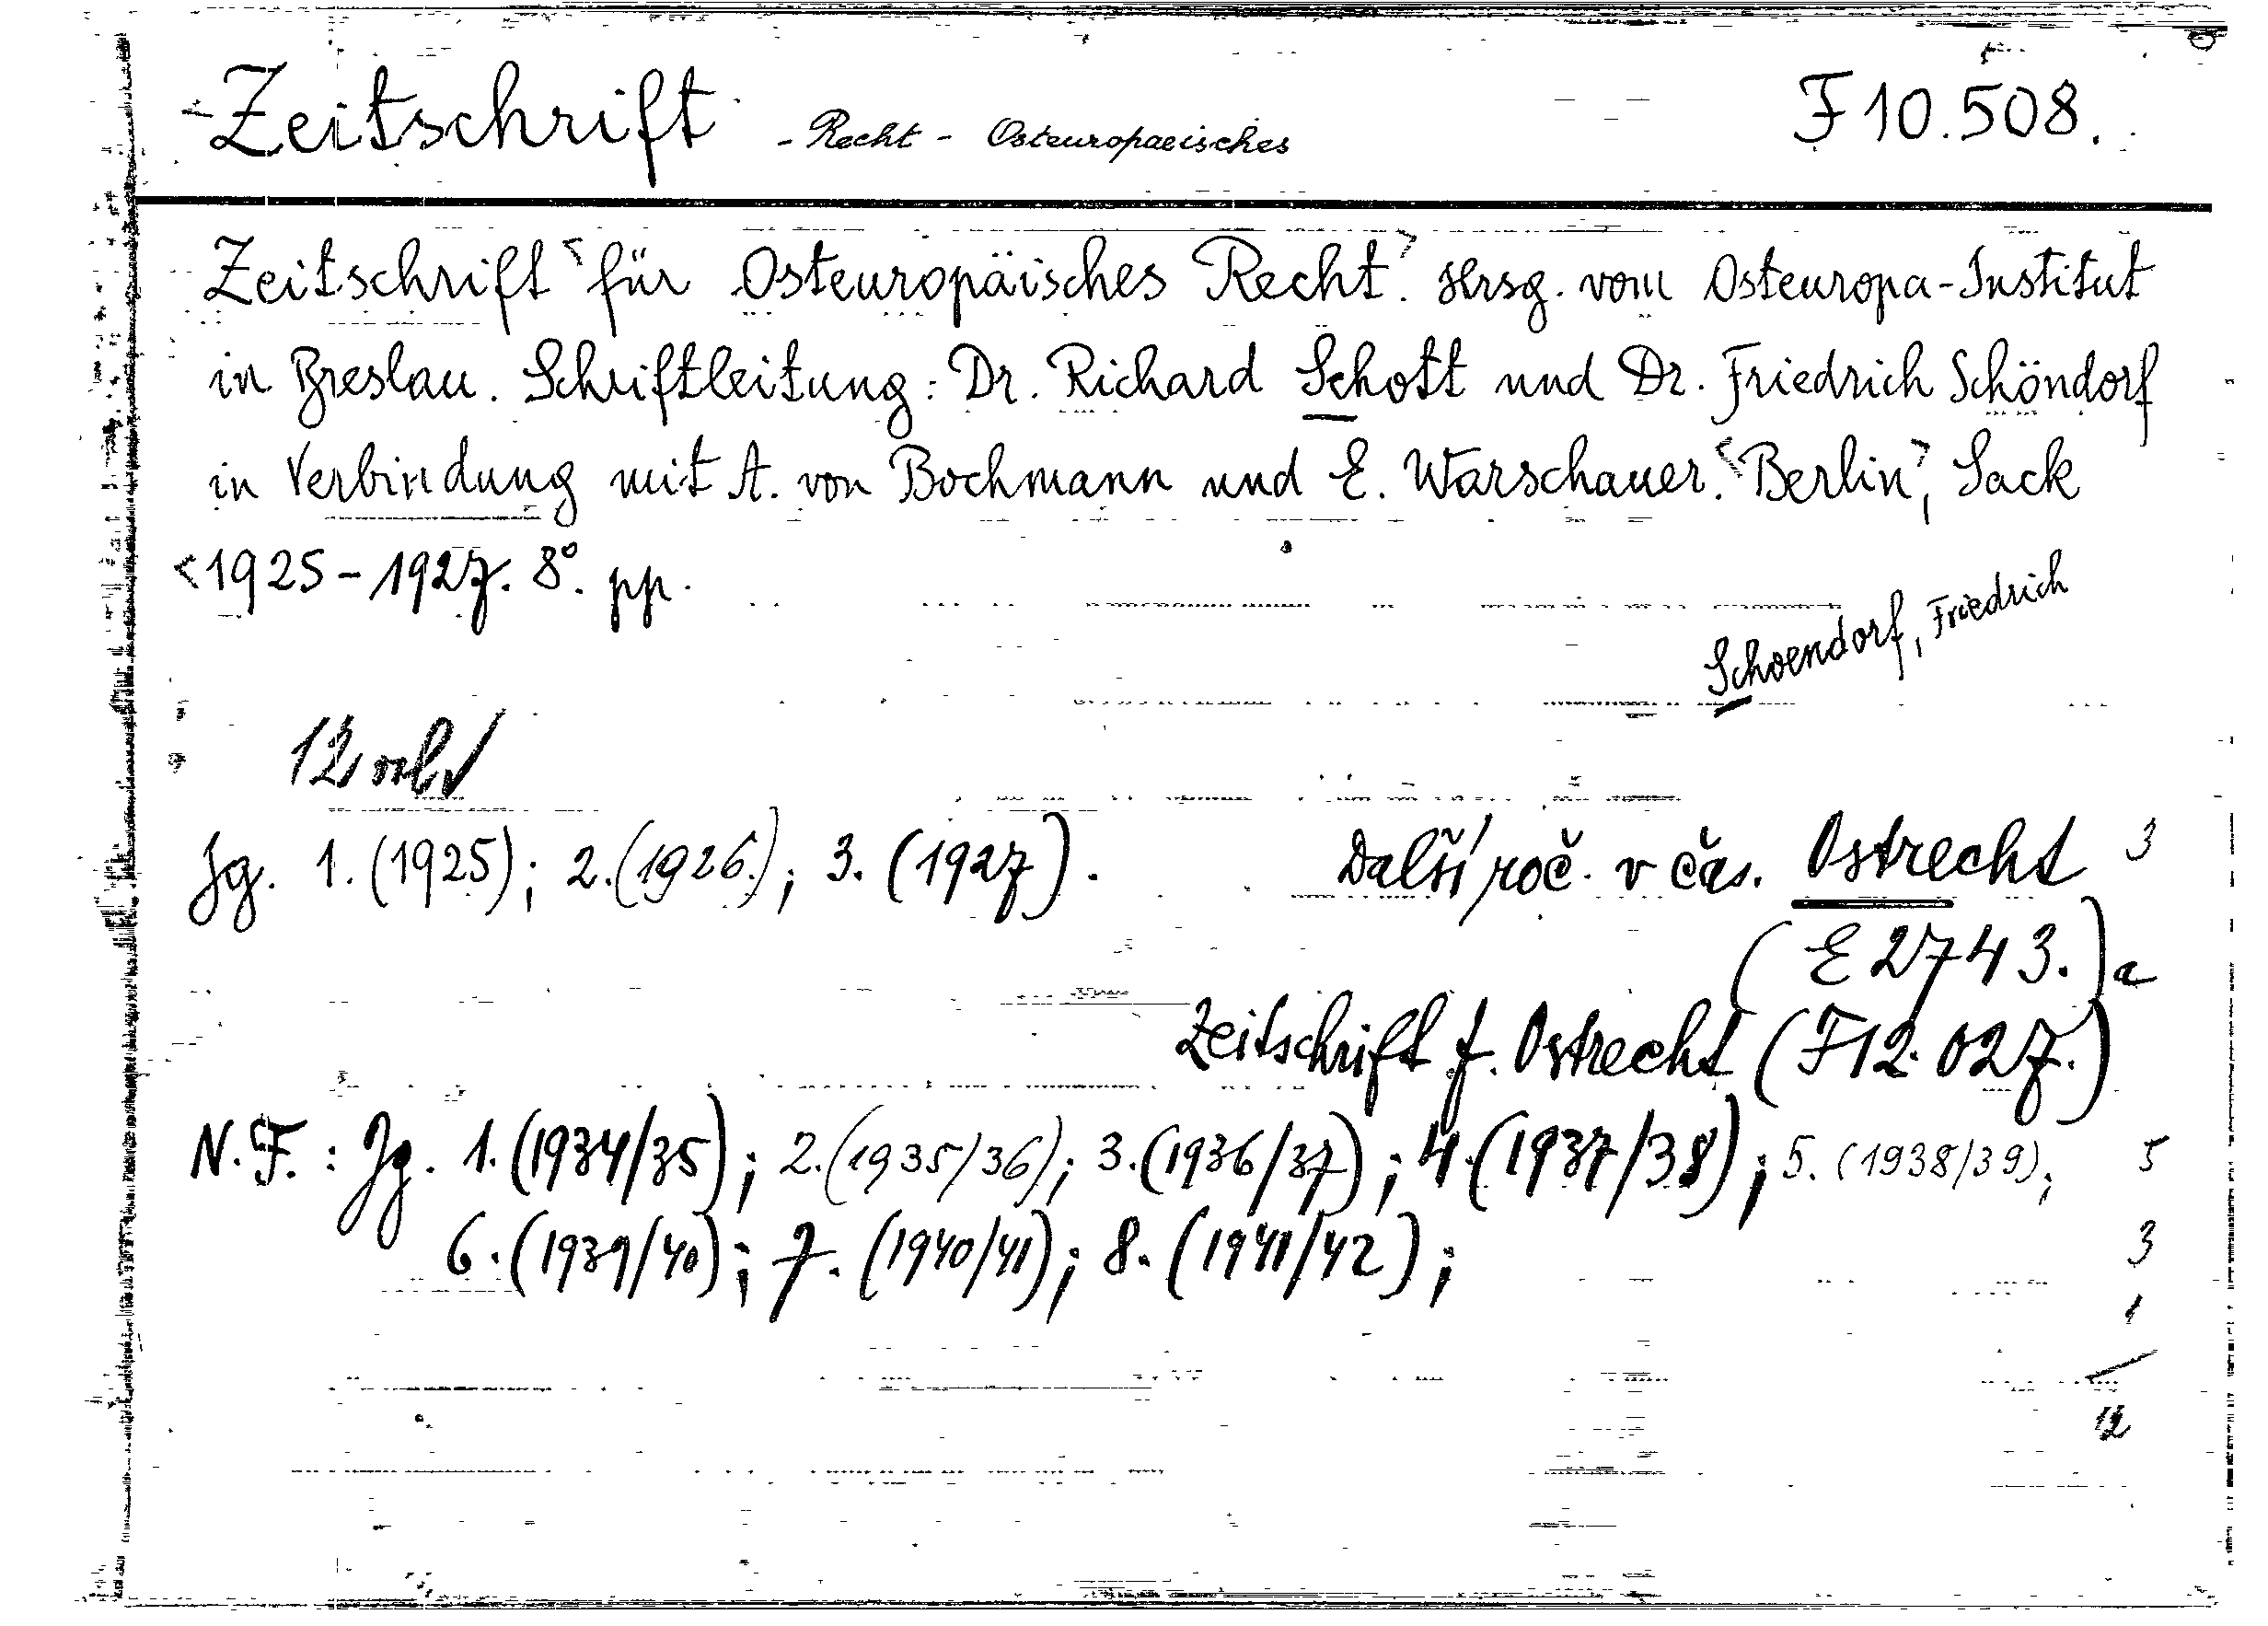 Zeitschrift - Recht - Osteuropaeisches F 10.508.
Zeitschrift <für Osteuropäisches Recht>. Hrsg. vom Osteuropa-Institut
in Breslau. Schriftleitung: Dr. Richard Schott und Dr. Friedrich Schöndorf
in Verbindung mit A. von Bochmann und E. Warschauer. <Berlin>, Sack
<1925-1927. 8°. pp.
Schoendorf, Friedrich
12
Jg. 1. (1925); 2. (1926.); 3. (1927). Další roč. v čas. Ostrecht 3
(E 2743.) a
Zeitschrift f. Ostrecht (F12.027.)
N.F.: Jg. 1. (1934/35); 2. (1935/36); 3. (1936/37); 4. (1937/38); 5. (1938/39); 5
6. (1939/40); 7. (1940/41); 8. (1941/42); 3
1
12